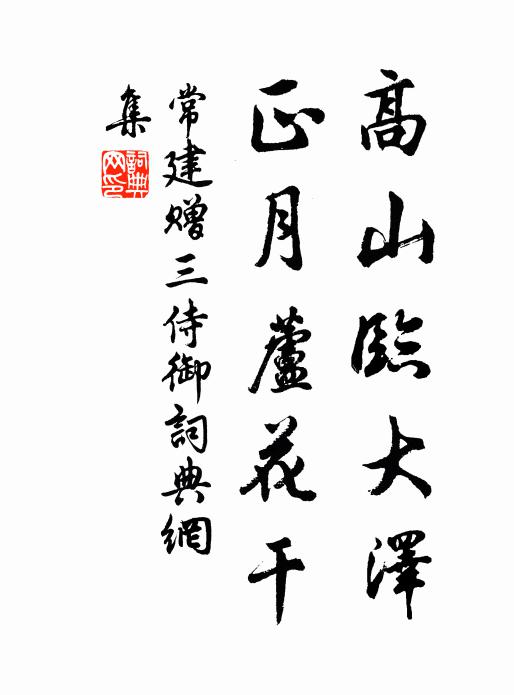 高山臨大澤
正月蘆花干
常建贈三侍御詞典網
集
詞典
网印